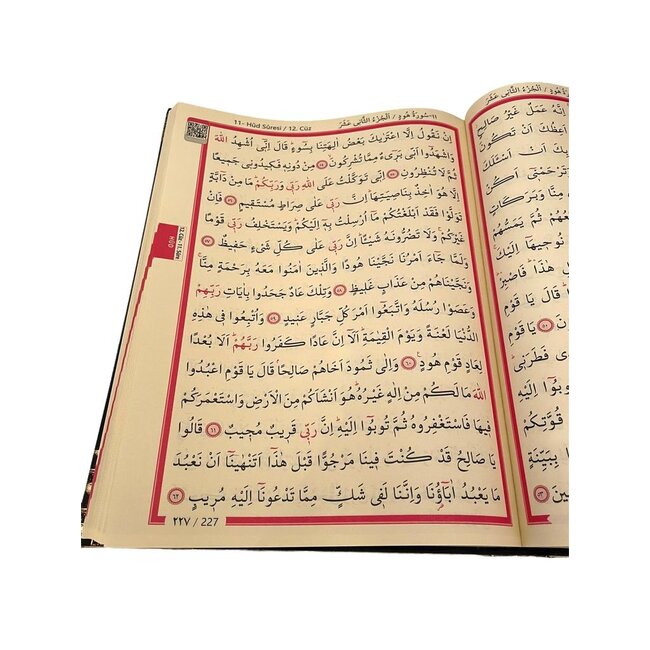 ١١-سُورَةُ هُودٍ / اَلْجُزْءُ الثَّانِي عَشَرَ
اِنَّهُ عَمَلٌ غَيْرُ صَالِحٍ
اَعِظُكَ اَنْ تَكُونَ
بِكَ اَنْ اَسْـَٔلَكَ
وَتَرْحَمْن۪ٓي اَكُنْ
مِنَّا وَبَرَكَاتٍ
ثُمَّ يَمَسُّهُمْ
نُوح۪يهَٓا اِلَيْكَۚ
هٰذَاۜ فَاصْبِرْۜ
قَالَ يَا قَوْمِ
﴿٥٠﴾ يَا قَوْمِ
فَطَرَن۪يۜ
تُوبُٓوا اِلَيْهِ
قُوَّتِكُمْ
بِبَيِّنَةٍ
﴿٥٣﴾
11- Hûd Sûresi / 12. Cüz ١١-سُورَةُ هُودٍ / اَلْجُزْءُ الثَّانِي عَشَرَ
اِنْ نَقُولُ اِلَّا اعْتَرٰيكَ بَعْضُ اٰلِهَتِنَا بِسُٓوءٍۜ قَالَ اِنّ۪ٓي اُشْهِدُ اللّٰهَ
وَاشْهَدُٓوا اَنّ۪ي بَر۪ٓيءٌ مِمَّا تُشْرِكُونَۙ ﴿٥٤﴾ مِنْ دُونِه۪ فَك۪يدُون۪ي جَم۪يعًا
ثُمَّ لَا تُنْظِرُونِ ﴿٥٥﴾ اِنّ۪ي تَوَكَّلْتُ عَلَى اللّٰهِ رَبّ۪ي وَرَبِّكُمْۜ مَا مِنْ دَٓابَّةٍ
اِلَّا هُوَ اٰخِذٌ بِنَاصِيَتِهَاۜ اِنَّ رَبّ۪ي عَلٰى صِرَاطٍ مُسْتَق۪يمٍ ﴿٥٦﴾ فَاِنْ
تَوَلَّوْا فَقَدْ اَبْلَغْتُكُمْ مَٓا اُرْسِلْتُ بِه۪ٓ اِلَيْكُمْۜ وَيَسْتَخْلِفُ رَبّ۪ي قَوْمًا
غَيْرَكُمْۚ وَلَا تَضُرُّونَهُ شَيْـًٔاۜ اِنَّ رَبّ۪ي عَلٰى كُلِّ شَيْءٍ حَف۪يظٌ ﴿٥٧﴾
وَلَمَّا جَٓاءَ اَمْرُنَا نَجَّيْنَا هُودًا وَالَّذ۪ينَ اٰمَنُوا مَعَهُ بِرَحْمَةٍ مِنَّاۚ
وَنَجَّيْنَاهُمْ مِنْ عَذَابٍ غَل۪يظٍ ﴿٥٨﴾ وَتِلْكَ عَادٌ جَحَدُوا بِاٰيَاتِ رَبِّهِمْ
وَعَصَوْا رُسُلَهُ وَاتَّبَعُٓوا اَمْرَ كُلِّ جَبَّارٍ عَن۪يدٍ ﴿٥٩﴾ وَاُتْبِعُوا ف۪ي هٰذِهِ
الدُّنْيَا لَعْنَةً وَيَوْمَ الْقِيٰمَةِۜ اَلَٓا اِنَّ عَادًا كَفَرُوا رَبَّهُمْۜ اَلَا بُعْدًا
لِعَادٍ قَوْمِ هُودٍ۟ ﴿٦٠﴾ وَاِلٰى ثَمُودَ اَخَاهُمْ صَالِحًاۢ قَالَ يَا قَوْمِ اعْبُدُوا
اللّٰهَ مَا لَكُمْ مِنْ اِلٰهٍ غَيْرُهُۜ هُوَ اَنْشَاَكُمْ مِنَ الْاَرْضِ وَاسْتَعْمَرَكُمْ
ف۪يهَا فَاسْتَغْفِرُوهُ ثُمَّ تُوبُٓوا اِلَيْهِۜ اِنَّ رَبّ۪ي قَر۪يبٌ مُج۪يبٌ ﴿٦١﴾ قَالُوا
يَا صَالِحُ قَدْ كُنْتَ ف۪ينَا مَرْجُوًّا قَبْلَ هٰذَٓا اَتَنْهٰينَٓا اَنْ نَعْبُدَ
مَا يَعْبُدُ اٰبَٓاؤُ۬نَا وَاِنَّنَا لَف۪ي شَكٍّ مِمَّا تَدْعُونَٓا اِلَيْهِ مُر۪يبٍ ﴿٦٢﴾
٢٢٧ / 227
12. Cüz - 11. Sûre
HÛD